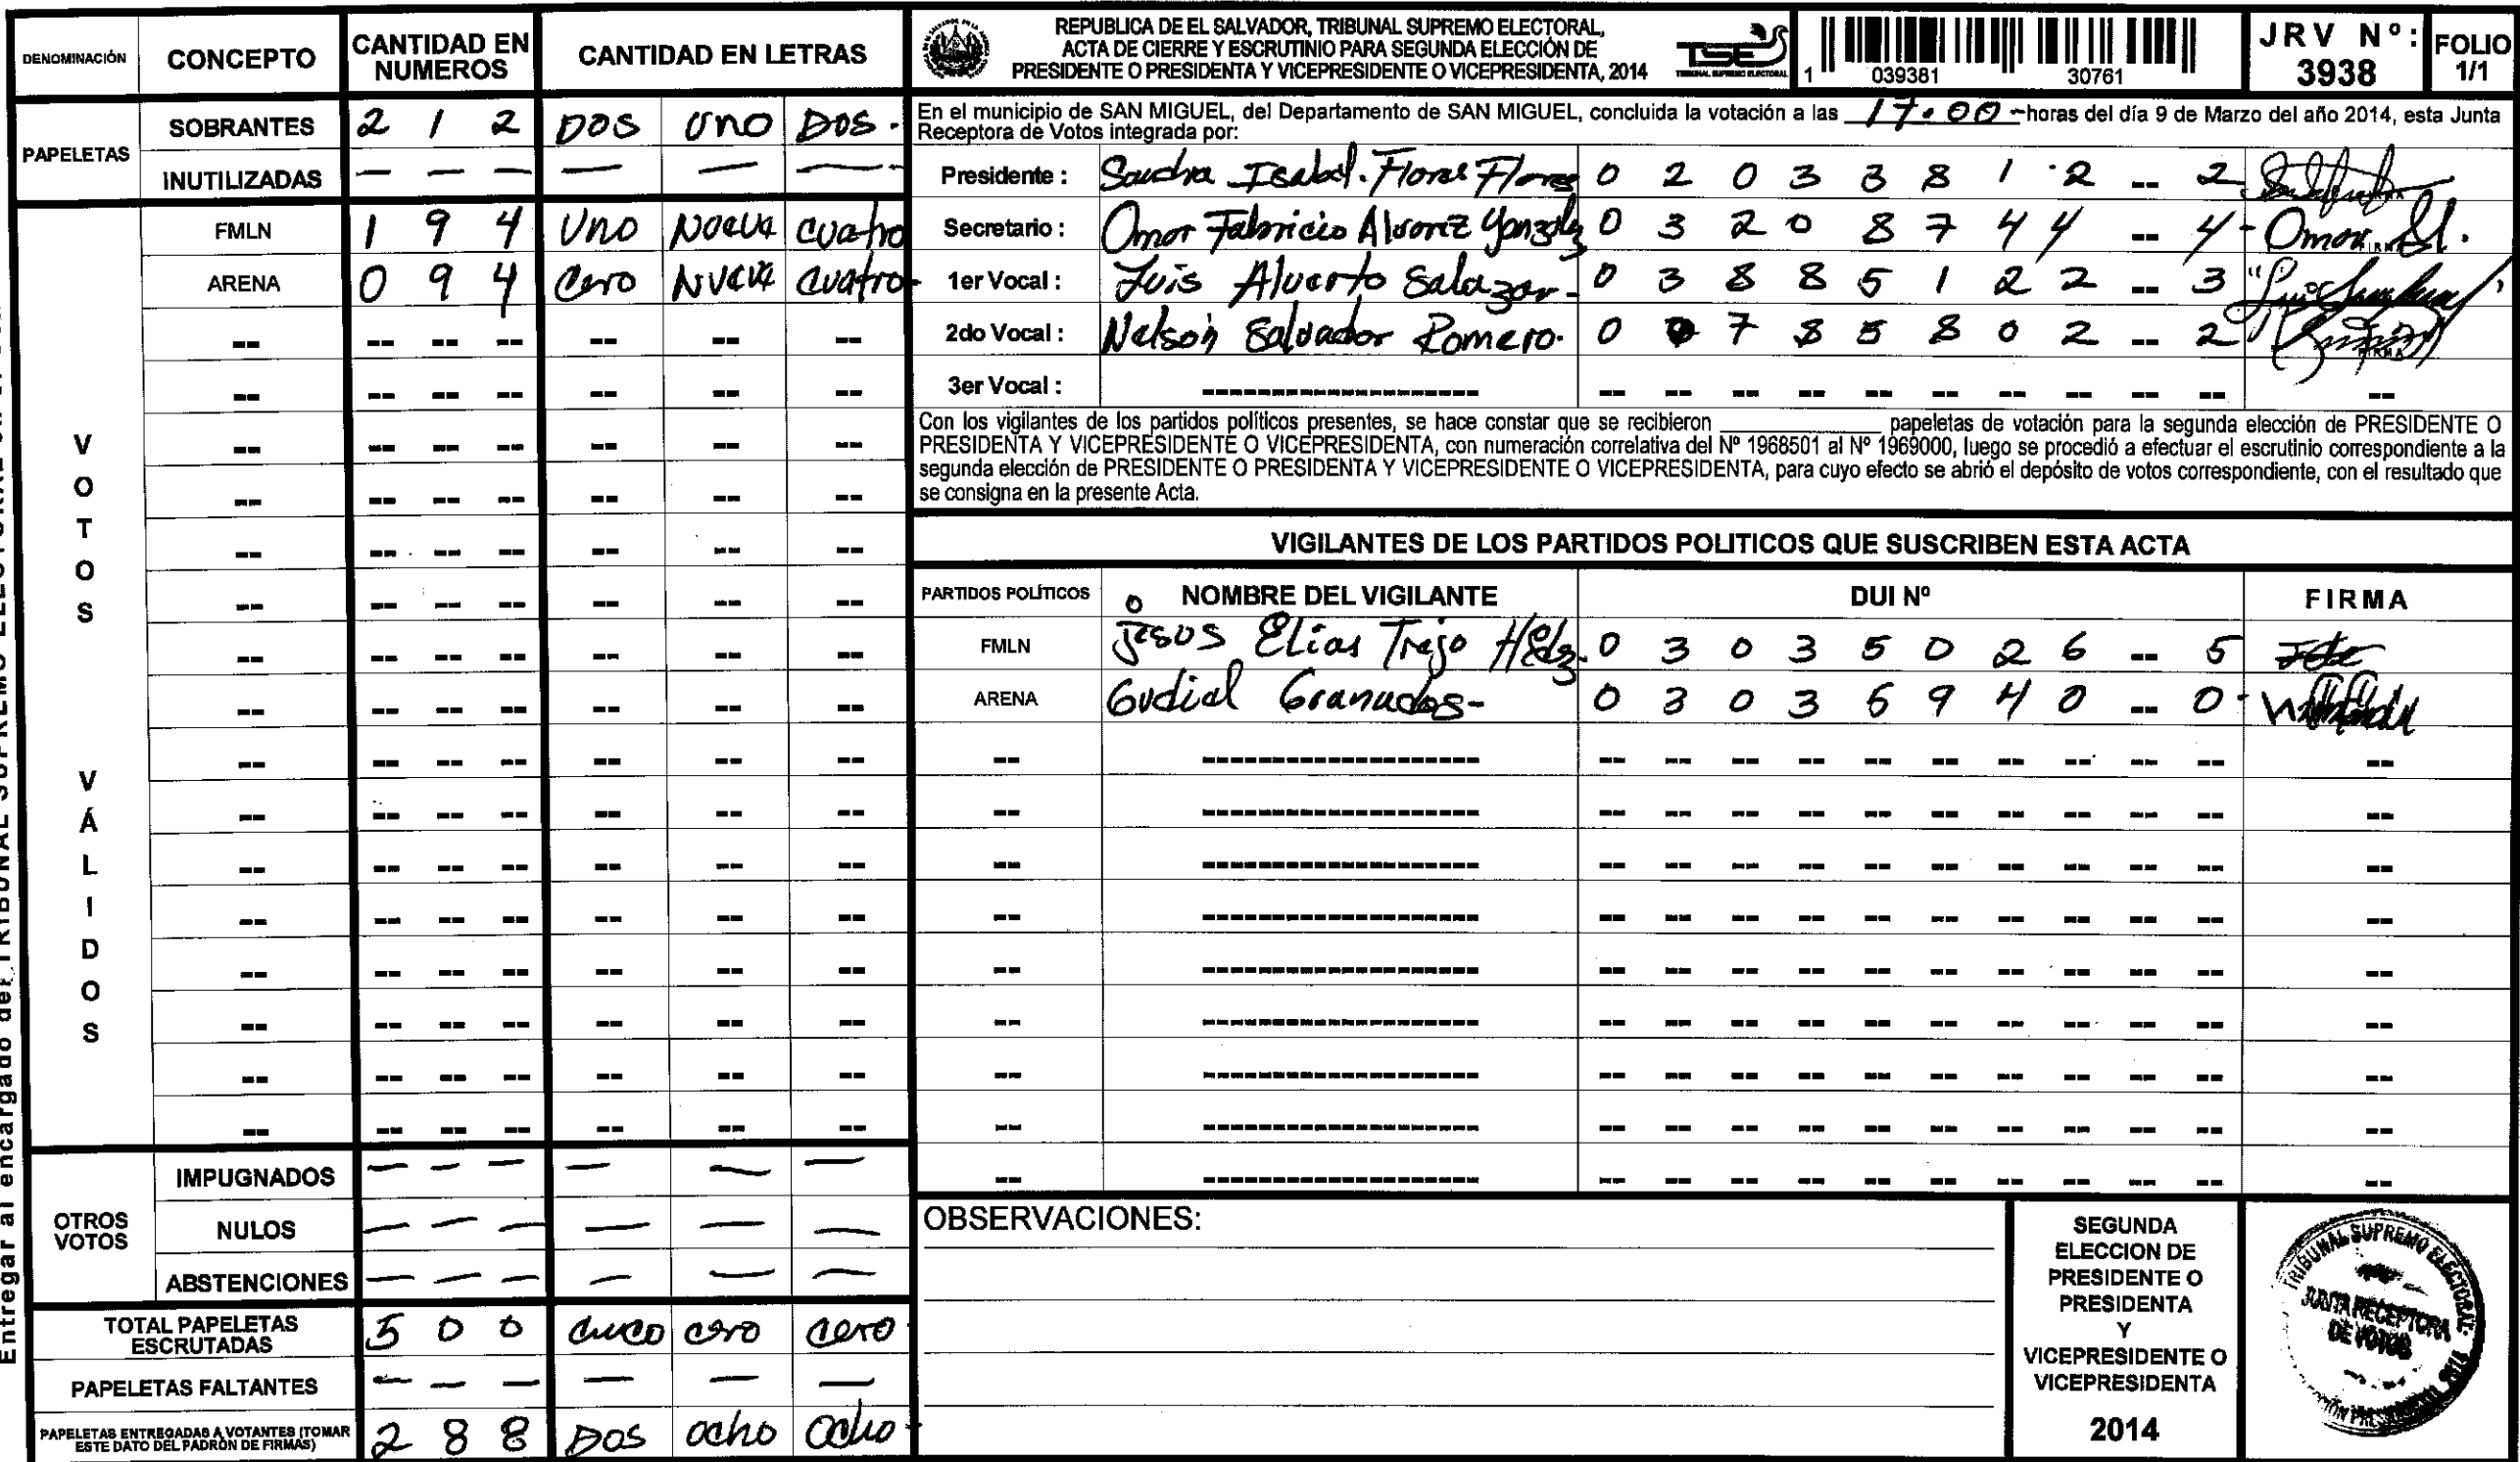 DENOMINACIÓN CONCEPTO CANTIDAD EN NUMEROS CANTIDAD EN LETRAS
PAPELETAS
SOBRANTES 2 1 2 DOS UNO DOS.
INUTILIZADAS — — — — — —
VOTOS VÁLIDOS
FMLN 1 9 4 UNO NOEVE cuatro
ARENA 0 9 4 Cero NUEVE cuatro-
OTROS VOTOS
IMPUGNADOS — — — — — —
NULOS — — — — — —
ABSTENCIONES — — — — — —
TOTAL PAPELETAS ESCRUTADAS 5 0 0 cinco cero cero
PAPELETAS FALTANTES — — — — — —
PAPELETAS ENTREGADAS A VOTANTES (TOMAR ESTE DATO DEL PADRÓN DE FIRMAS) 2 8 8 DOS ocho ocho
REPUBLICA DE EL SALVADOR, TRIBUNAL SUPREMO ELECTORAL,
ACTA DE CIERRE Y ESCRUTINIO PARA SEGUNDA ELECCIÓN DE
PRESIDENTE O PRESIDENTA Y VICEPRESIDENTE O VICEPRESIDENTA, 2014
TSE
TRIBUNAL SUPREMO ELECTORAL
1 039381 30761
JRV Nº: 3938
FOLIO 1/1
En el municipio de SAN MIGUEL, del Departamento de SAN MIGUEL, concluida la votación a las 17.00 horas del día 9 de Marzo del año 2014, esta Junta
Receptora de Votos integrada por:
Presidente : Sandra Isabel. Flores Flores 0 2 0 3 3 8 1 2 -- 2
Secretario : Omar Fabricio Alvarez Gonzalez 0 3 2 0 8 7 4 4 -- 4 Omar Al.
1er Vocal : Luis Alverto Salazar- 0 3 8 8 5 1 2 2 -- 3
2do Vocal : Nelson Salvador Romero. 0 0 7 8 5 8 0 2 -- 2 FIRMA
3er Vocal : -- -- -- -- -- -- -- -- -- -- --
Con los vigilantes de los partidos políticos presentes, se hace constar que se recibieron ________ papeletas de votación para la segunda elección de PRESIDENTE O
PRESIDENTA Y VICEPRESIDENTE O VICEPRESIDENTA, con numeración correlativa del Nº 1968501 al Nº 1969000, luego se procedió a efectuar el escrutinio correspondiente a la
segunda elección de PRESIDENTE O PRESIDENTA Y VICEPRESIDENTE O VICEPRESIDENTA, para cuyo efecto se abrió el depósito de votos correspondiente, con el resultado que
se consigna en la presente Acta.
VIGILANTES DE LOS PARTIDOS POLITICOS QUE SUSCRIBEN ESTA ACTA
PARTIDOS POLÍTICOS NOMBRE DEL VIGILANTE DUI Nº FIRMA
FMLN Jesus Elias Trejo Hdz. 0 3 0 3 5 0 2 6 -- 5
ARENA Gudial Granados- 0 3 0 3 6 9 4 0 -- 0
OBSERVACIONES:
SEGUNDA
ELECCION DE
PRESIDENTE O
PRESIDENTA
Y
VICEPRESIDENTE O
VICEPRESIDENTA
2014
TRIBUNAL SUPREMO ELECTORAL
JUNTA RECEPTORA
DE VOTOS
Entregar al encargado del TRIBUNAL SUPREMO ELECTORAL